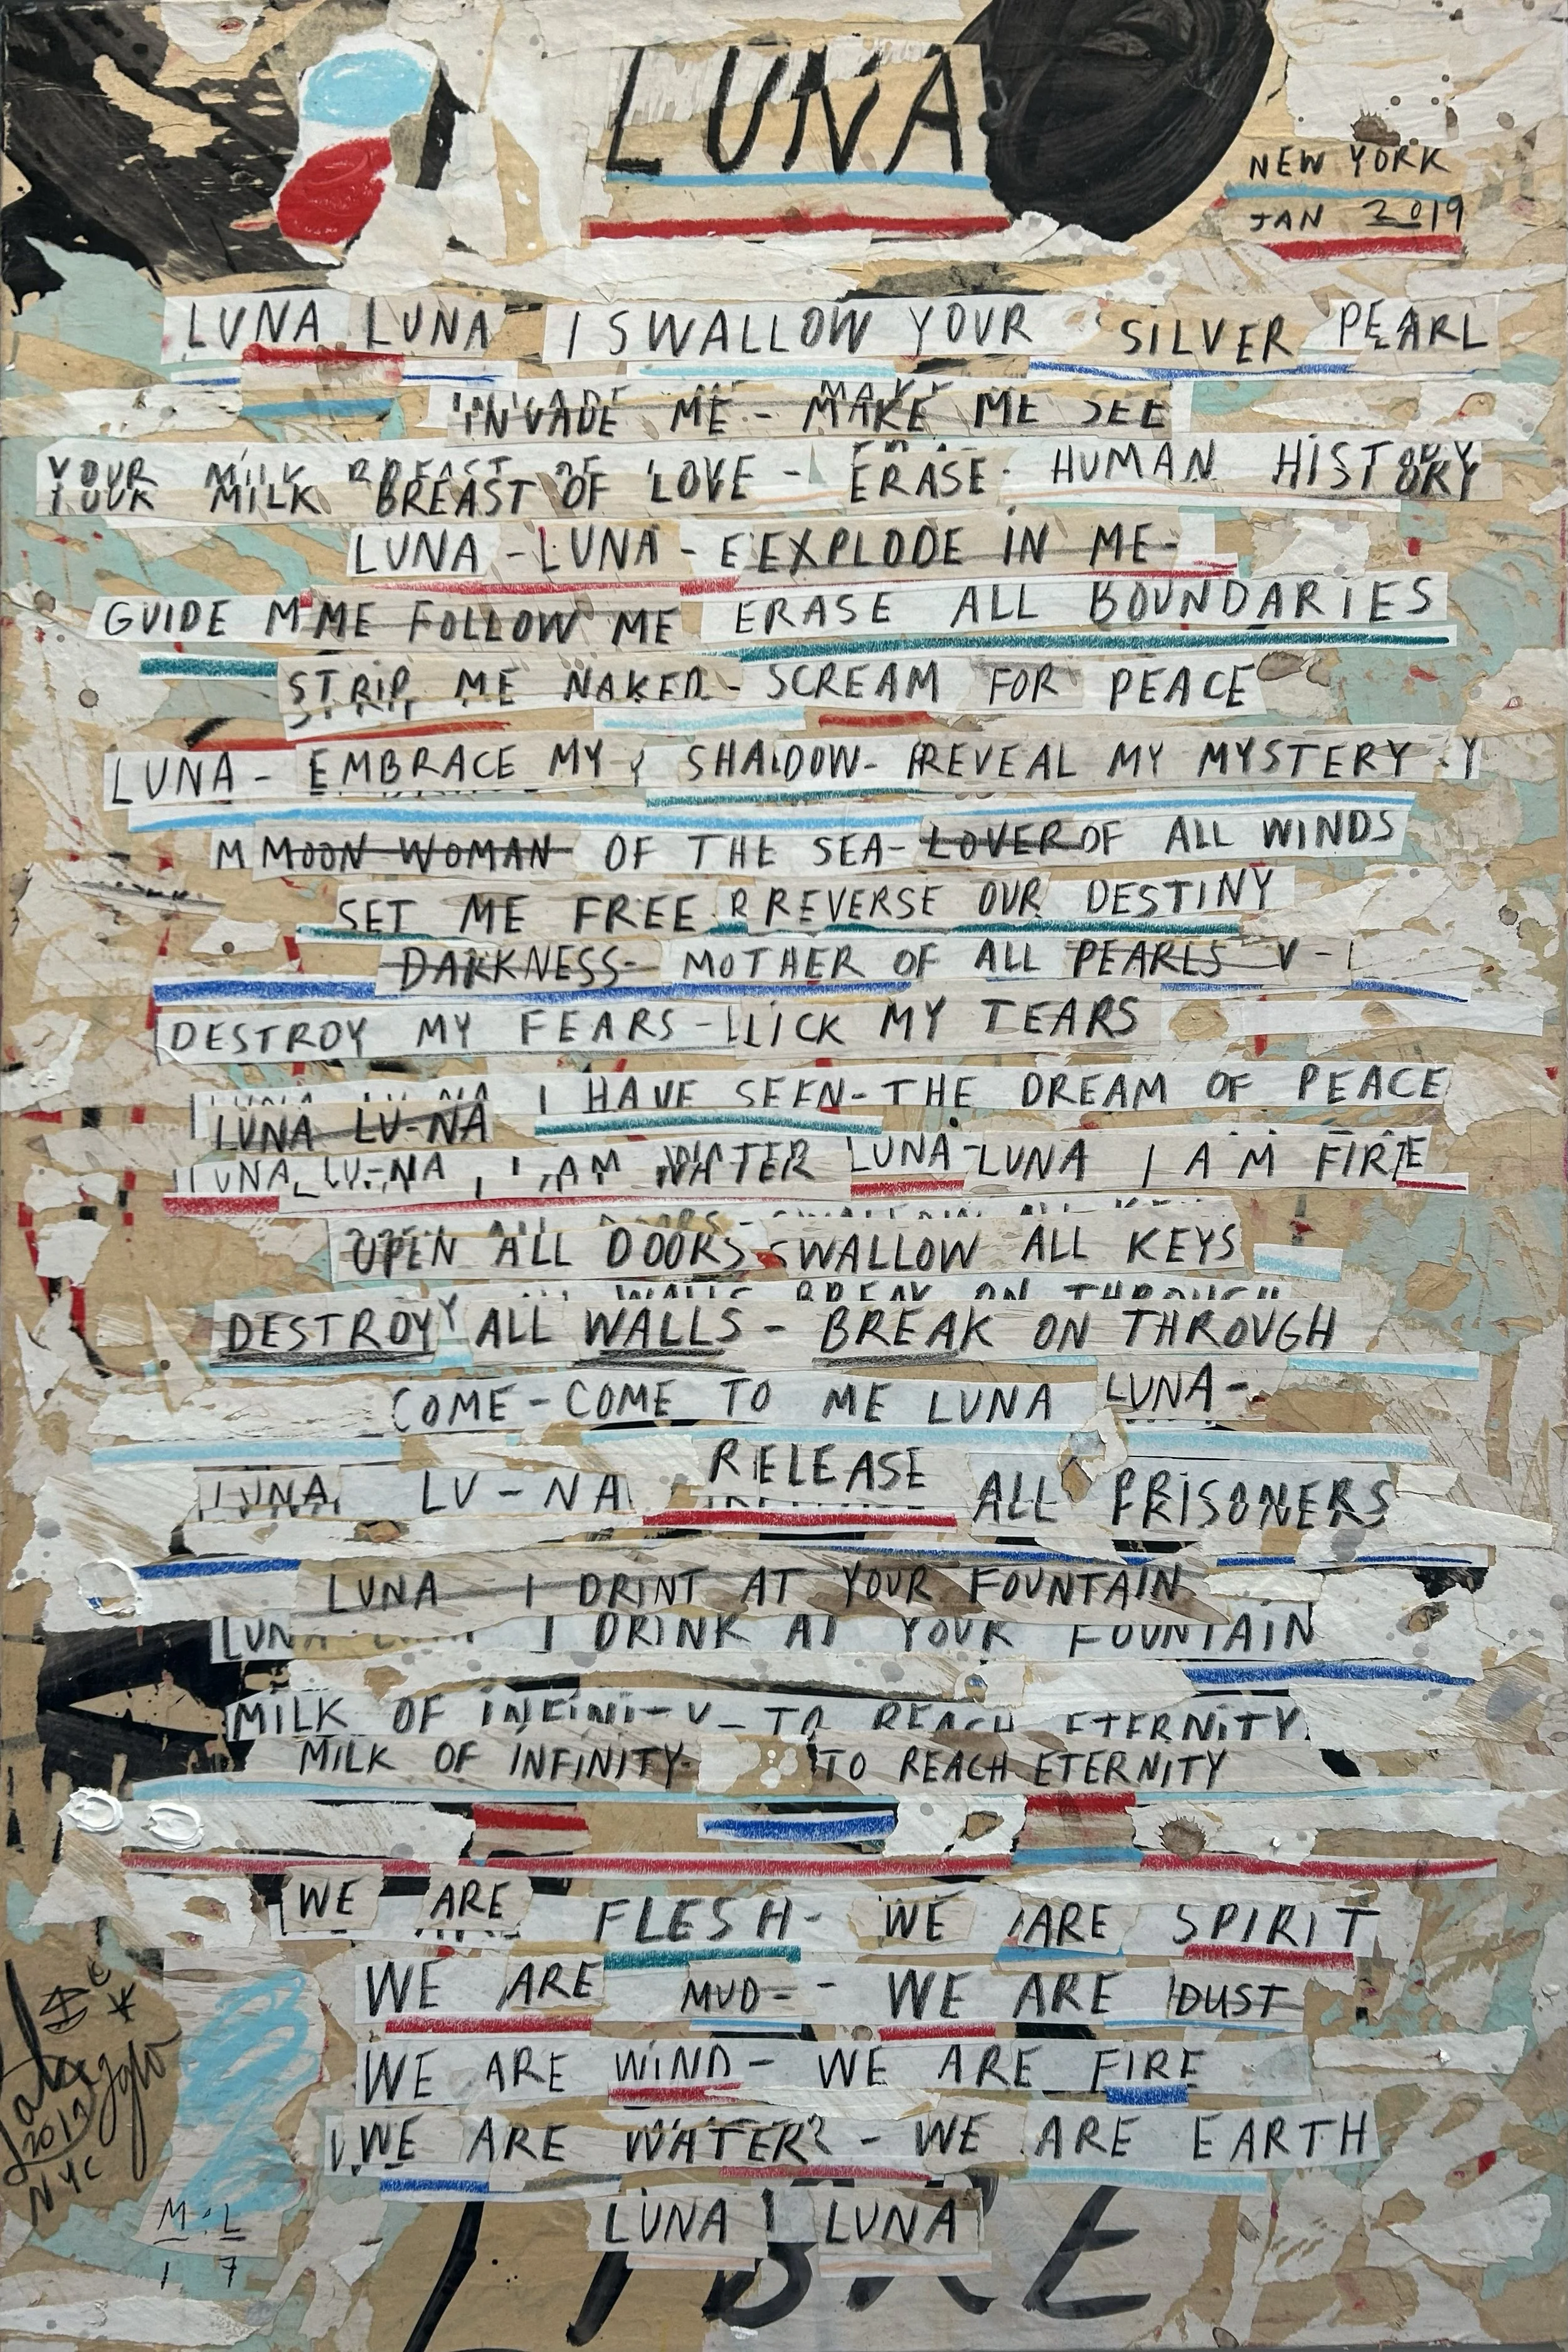 LUNA
NEW YORK
JAN 2019
LUNA LUNA I SWALLOW YOUR SILVER PEARL
INVADE ME - MAKE ME SEE
YOUR MILK BREAST OF LOVE - ERASE - HUMAN HISTORY
LUNA - LUNA - E EXPLODE IN ME -
GUIDE M ME FOLLOW ME ERASE ALL BOUNDARIES
STRIP ME NAKED - SCREAM FOR PEACE
LUNA - EMBRACE MY Y SHADOW - REVEAL MY MYSTERY - Y
M MOON WOMAN OF THE SEA - LOVER OF ALL WINDS
SET ME FREE R REVERSE OUR DESTINY
DARKNESS - MOTHER OF ALL PEARLS V -
DESTROY MY FEARS - LICK MY TEARS
LUNA LU-NA I HAVE SEEN - THE DREAM OF PEACE
LUNA LU-NA I AM WATER LUNA - LUNA I AM FIRE
OPEN ALL DOORS SWALLOW ALL KEYS
WALLS BREAK ON THROUGH
DESTROY Y ALL WALLS - BREAK ON THROUGH
COME - COME TO ME LUNA LUNA -
LUNA LU - NA RELEASE ALL PRISONERS
LUNA I DRINT AT YOUR FOUNTAIN
LUNA I DRINK AT YOUR FOUNTAIN
MILK OF INFINITY - TO REACH ETERNITY
MILK OF INFINITY - TO REACH ETERNITY
WE ARE FLESH - WE ARE SPIRIT
WE ARE MUD - - WE ARE DUST
WE ARE WIND - WE ARE FIRE
WE ARE WATER - WE ARE EARTH
LUNA LUNA
2019
NYC
M.L
17